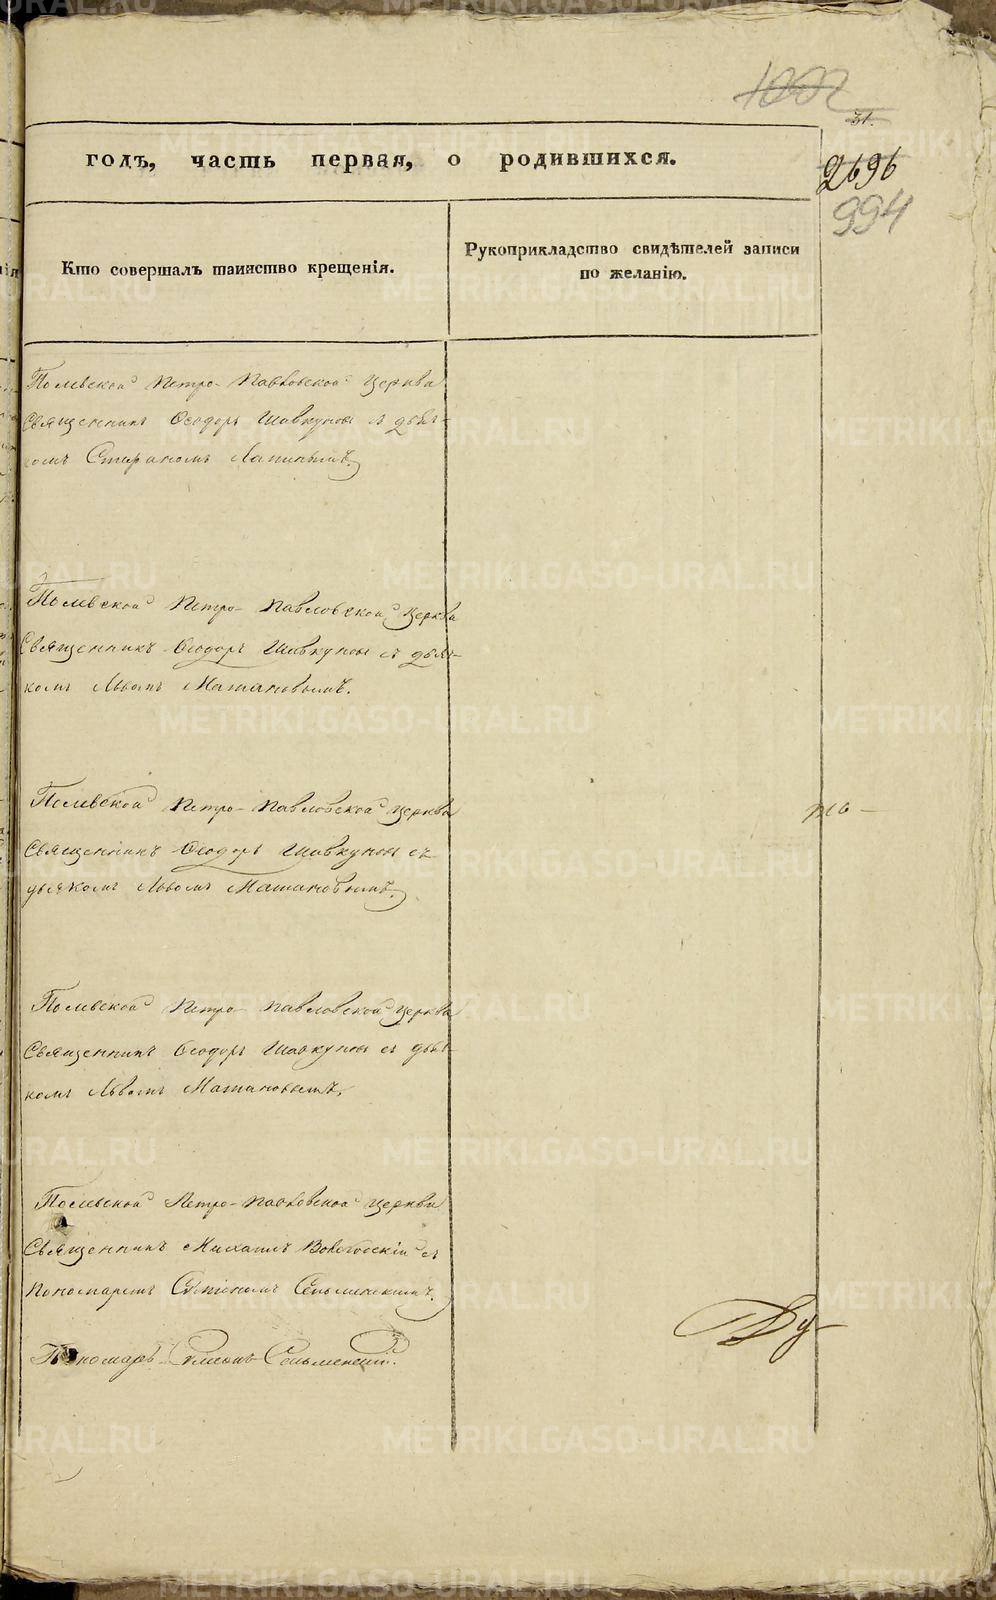 1002
51.
годъ, часть первая, о родившихся.
2696
994
Кто совершалъ таинство крещенія.
Рукоприкладство свидѣтелей записи
по желанію.
Полевской Петро-Павловской Церкви
Священникъ Ѳеодоръ Шавкуновъ съ дьяч-
комъ Стефаномъ Лапинымъ.
Полевской Петро-Павловской Церкви
Священникъ Ѳеодоръ Шавкуновъ съ дьяч-
комъ Львомъ Матановымъ.
Полевской Петро-Павловской Церкви
то
Священникъ Ѳеодоръ Шавкуновъ съ
дьячкомъ Львомъ Матановымъ.
Полевской Петро-Павловской Церкви
Священникъ Ѳеодоръ Шавкуновъ съ дьяч-
комъ Львомъ Матановымъ.
Полевской Петро-Павловской Церкви
Священникъ Михаилъ съ
Пономаремъ
Ду-
Пономарь
METRIKI.GASO-URAL.RU